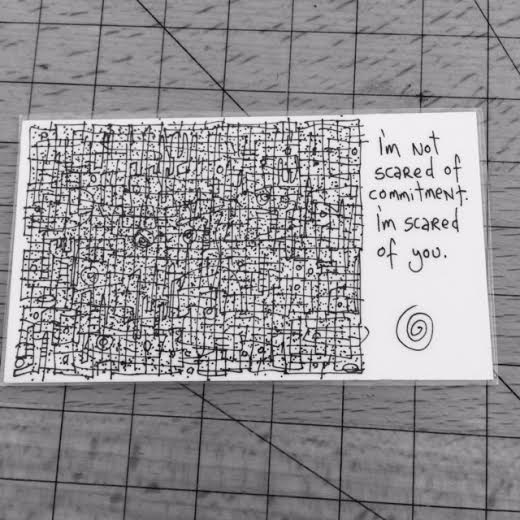 I'm not
scared of
commitment.
I'm scared
of you.